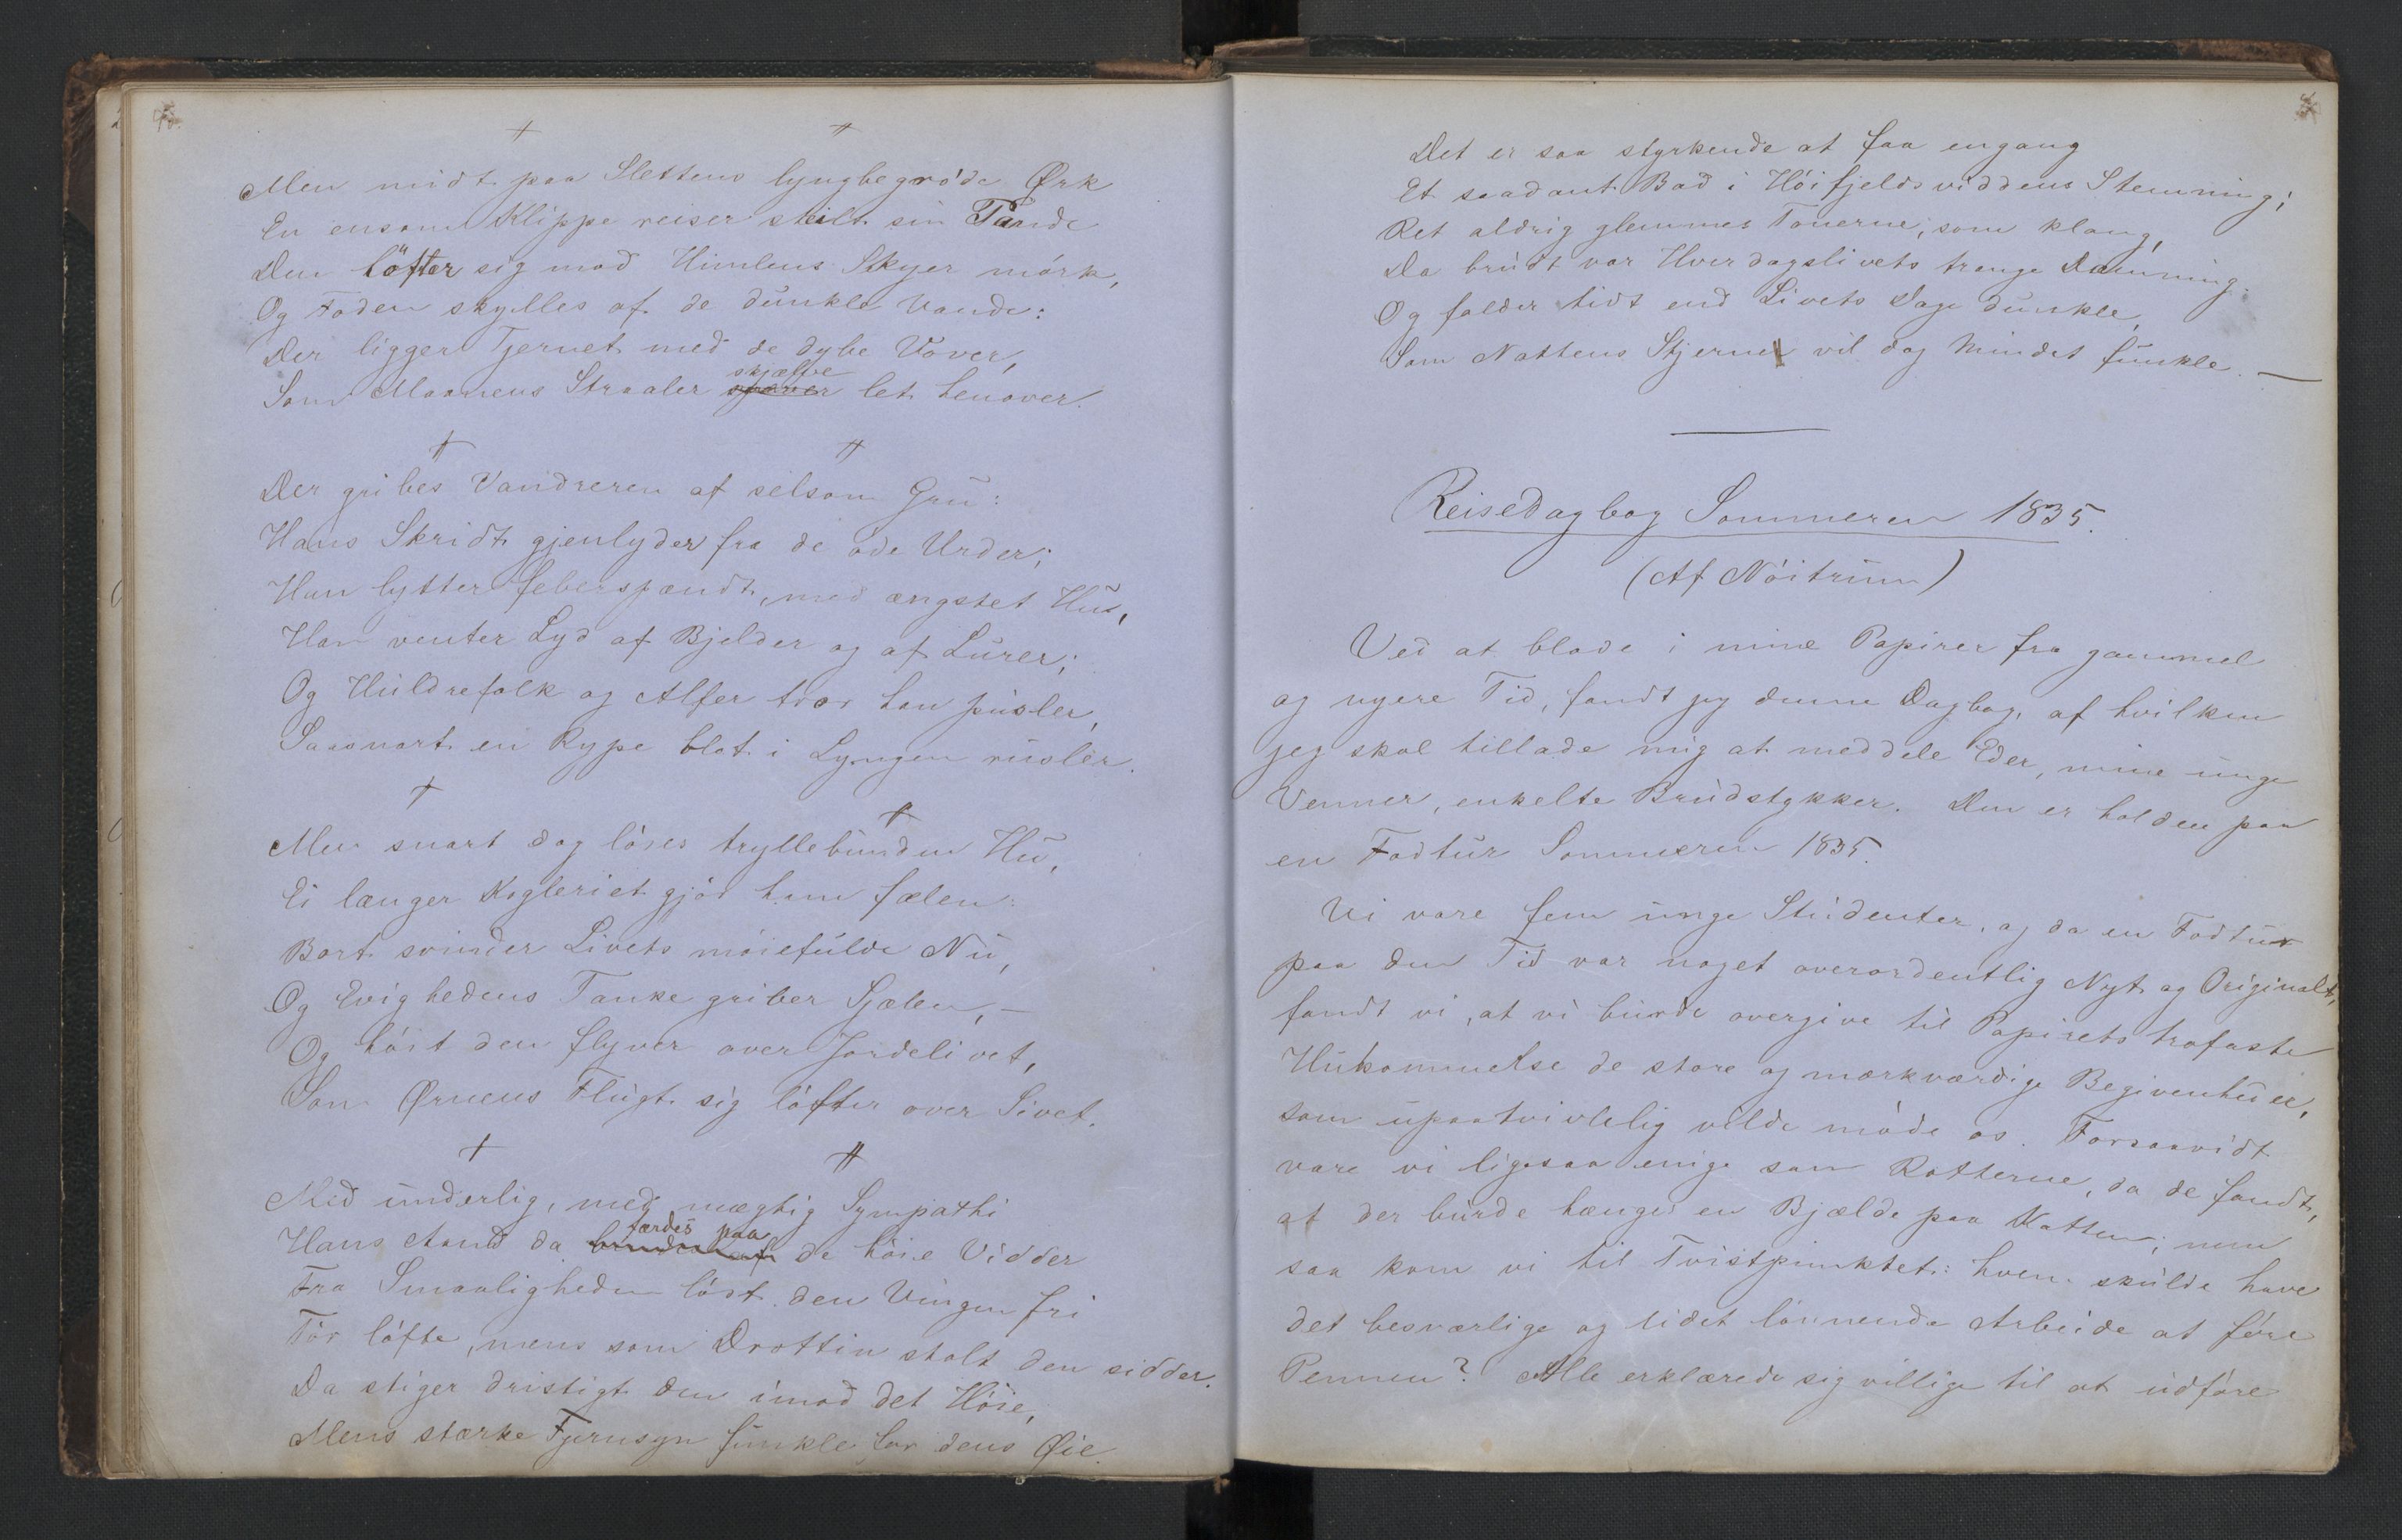 Men midt paa Slettens lyngbegróde Ørk
En ensom Klippe reiser steilt sin Pande
Den löfter sig mod Himlens Skyer mörk,
Og Foden skylles af de dunkle Vande:
Der ligger Tjernet med de dybe Vover,
skjælve
Som Maanens Straaler svæver let henover.
Der gribes Vandreren af selsom Gru:
Hans Skridt gjenlyder fra de óde Urder;
Han lytter feberspændt, med ængstet Hu,
Han venter Lyd af Bjelder og af Lurer;
Og Huldrefolk og Alfer tror han pusler,
Saasnart en Rype blot i Lyngen rusler.
Men snart dog lóses tryllebunden Hu,
Ei længer Kogleriet gjór ham fælen:
Bort svinder Livets móiefulde Nu,
Og Evighedens Tanke griber Sjælen, –
Og hóit den flyver over Jordelivet,
Som Ørnens Flugt sig lófter over Sivet.
Med underlig, med mægtig Sympathi
færdes paa
Hans Aand da de hóie Vidder
Fra Smaaligheden lóst den Vingen fri
Tór lófte, mens som Drottin stolt den sidder.
Da stiger dristigt den imod det Hóie,
Mens stærke Fjernsyn funkle for dens Øie.
Det er saa styrkende at faa engang
Et saadant Bad i Hóifjeldsviddens Stemning;
Ret aldrig glemmes Tonerne, som klang,
Da brudt var Hverdagslivets trange Dæmning.
Og falder tidt end Livets Dage dunkle,
Som Nattens Stjerne vil dog Mindet funkle. —
Reisedagbog Sommeren 1835.
(Af Nóitrum)
Ved at blade i mine Papirer fra gammel
og nyere Tid, fandt jeg denne Dagbog, af hvilken
jeg skal tillade mig at meddele Eder, mine unge
Venner, enkelte Brudstykker. Den er holden paa
en Fodtur Sommeren 1835.
Vi vare fem unge Studenter, og da en Fodtur
paa den Tid var noget overordentlig Nyt og Originalt,
fandt vi, at vi burde overgive til Papirets trofaste
Hukommelse de store og mærkværdige Begivenheder,
som upaatvivlelig vilde móde os. Forsaavidt
vare vi ligesaa enige som Rotterne, da de fandt,
at der burde hænges en Bjælde paa Katten; men
saa kom vi til Tvistpunktet: hvem skulde have
det besværlige og lidet lónnende Arbeide at fóre
Pennen? Alle erklærede sig villige til at udfóre